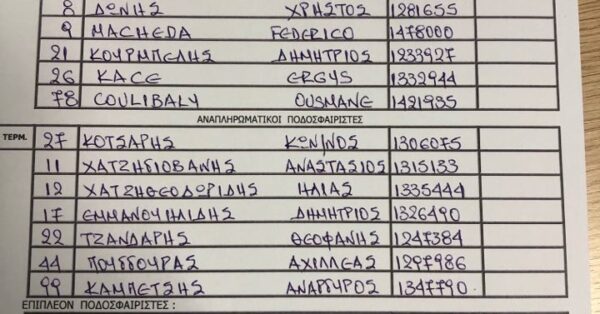 8 ΔΩΝΗΣ ΧΡΗΣΤΟΣ 1281655
9 MACHEDA FEDERICO 1478000
21 ΚΟΥΡΜΠΕΛΗΣ ΔΗΜΗΤΡΙΟΣ 1233927
26 KACE ERGYS 1332944
78 COULIBALY OUSMANE 1421935
ΑΝΑΠΛΗΡΩΜΑΤΙΚΟΙ ΠΟΔΟΣΦΑΙΡΙΣΤΕΣ
ΤΕΡΜ. 27 ΚΟΤΣΑΡΗΣ ΚΩΝ/ΝΟΣ 1306075
11 ΧΑΤΖΗΓΙΟΒΑΝΗΣ ΑΝΑΣΤΑΣΙΟΣ 1315133
12 ΧΑΤΖΗΘΕΟΔΩΡΙΔΗΣ ΗΛΙΑΣ 1335444
17 ΕΜΜΑΝΟΥΗΛΙΔΗΣ ΔΗΜΗΤΡΙΟΣ 1326490
22 ΤΖΑΝΔΑΡΗΣ ΘΕΟΦΑΝΗΣ 1247384
44 ΠΟΥΓΓΟΥΡΑΣ ΑΧΙΛΛΕΑΣ 1297986
99 ΚΑΜΠΕΤΣΗΣ ΑΝΑΡΓΥΡΟΣ 1347790
ΕΠΙΠΛΕΟΝ ΠΟΔΟΣΦΑΙΡΙΣΤΕΣ :